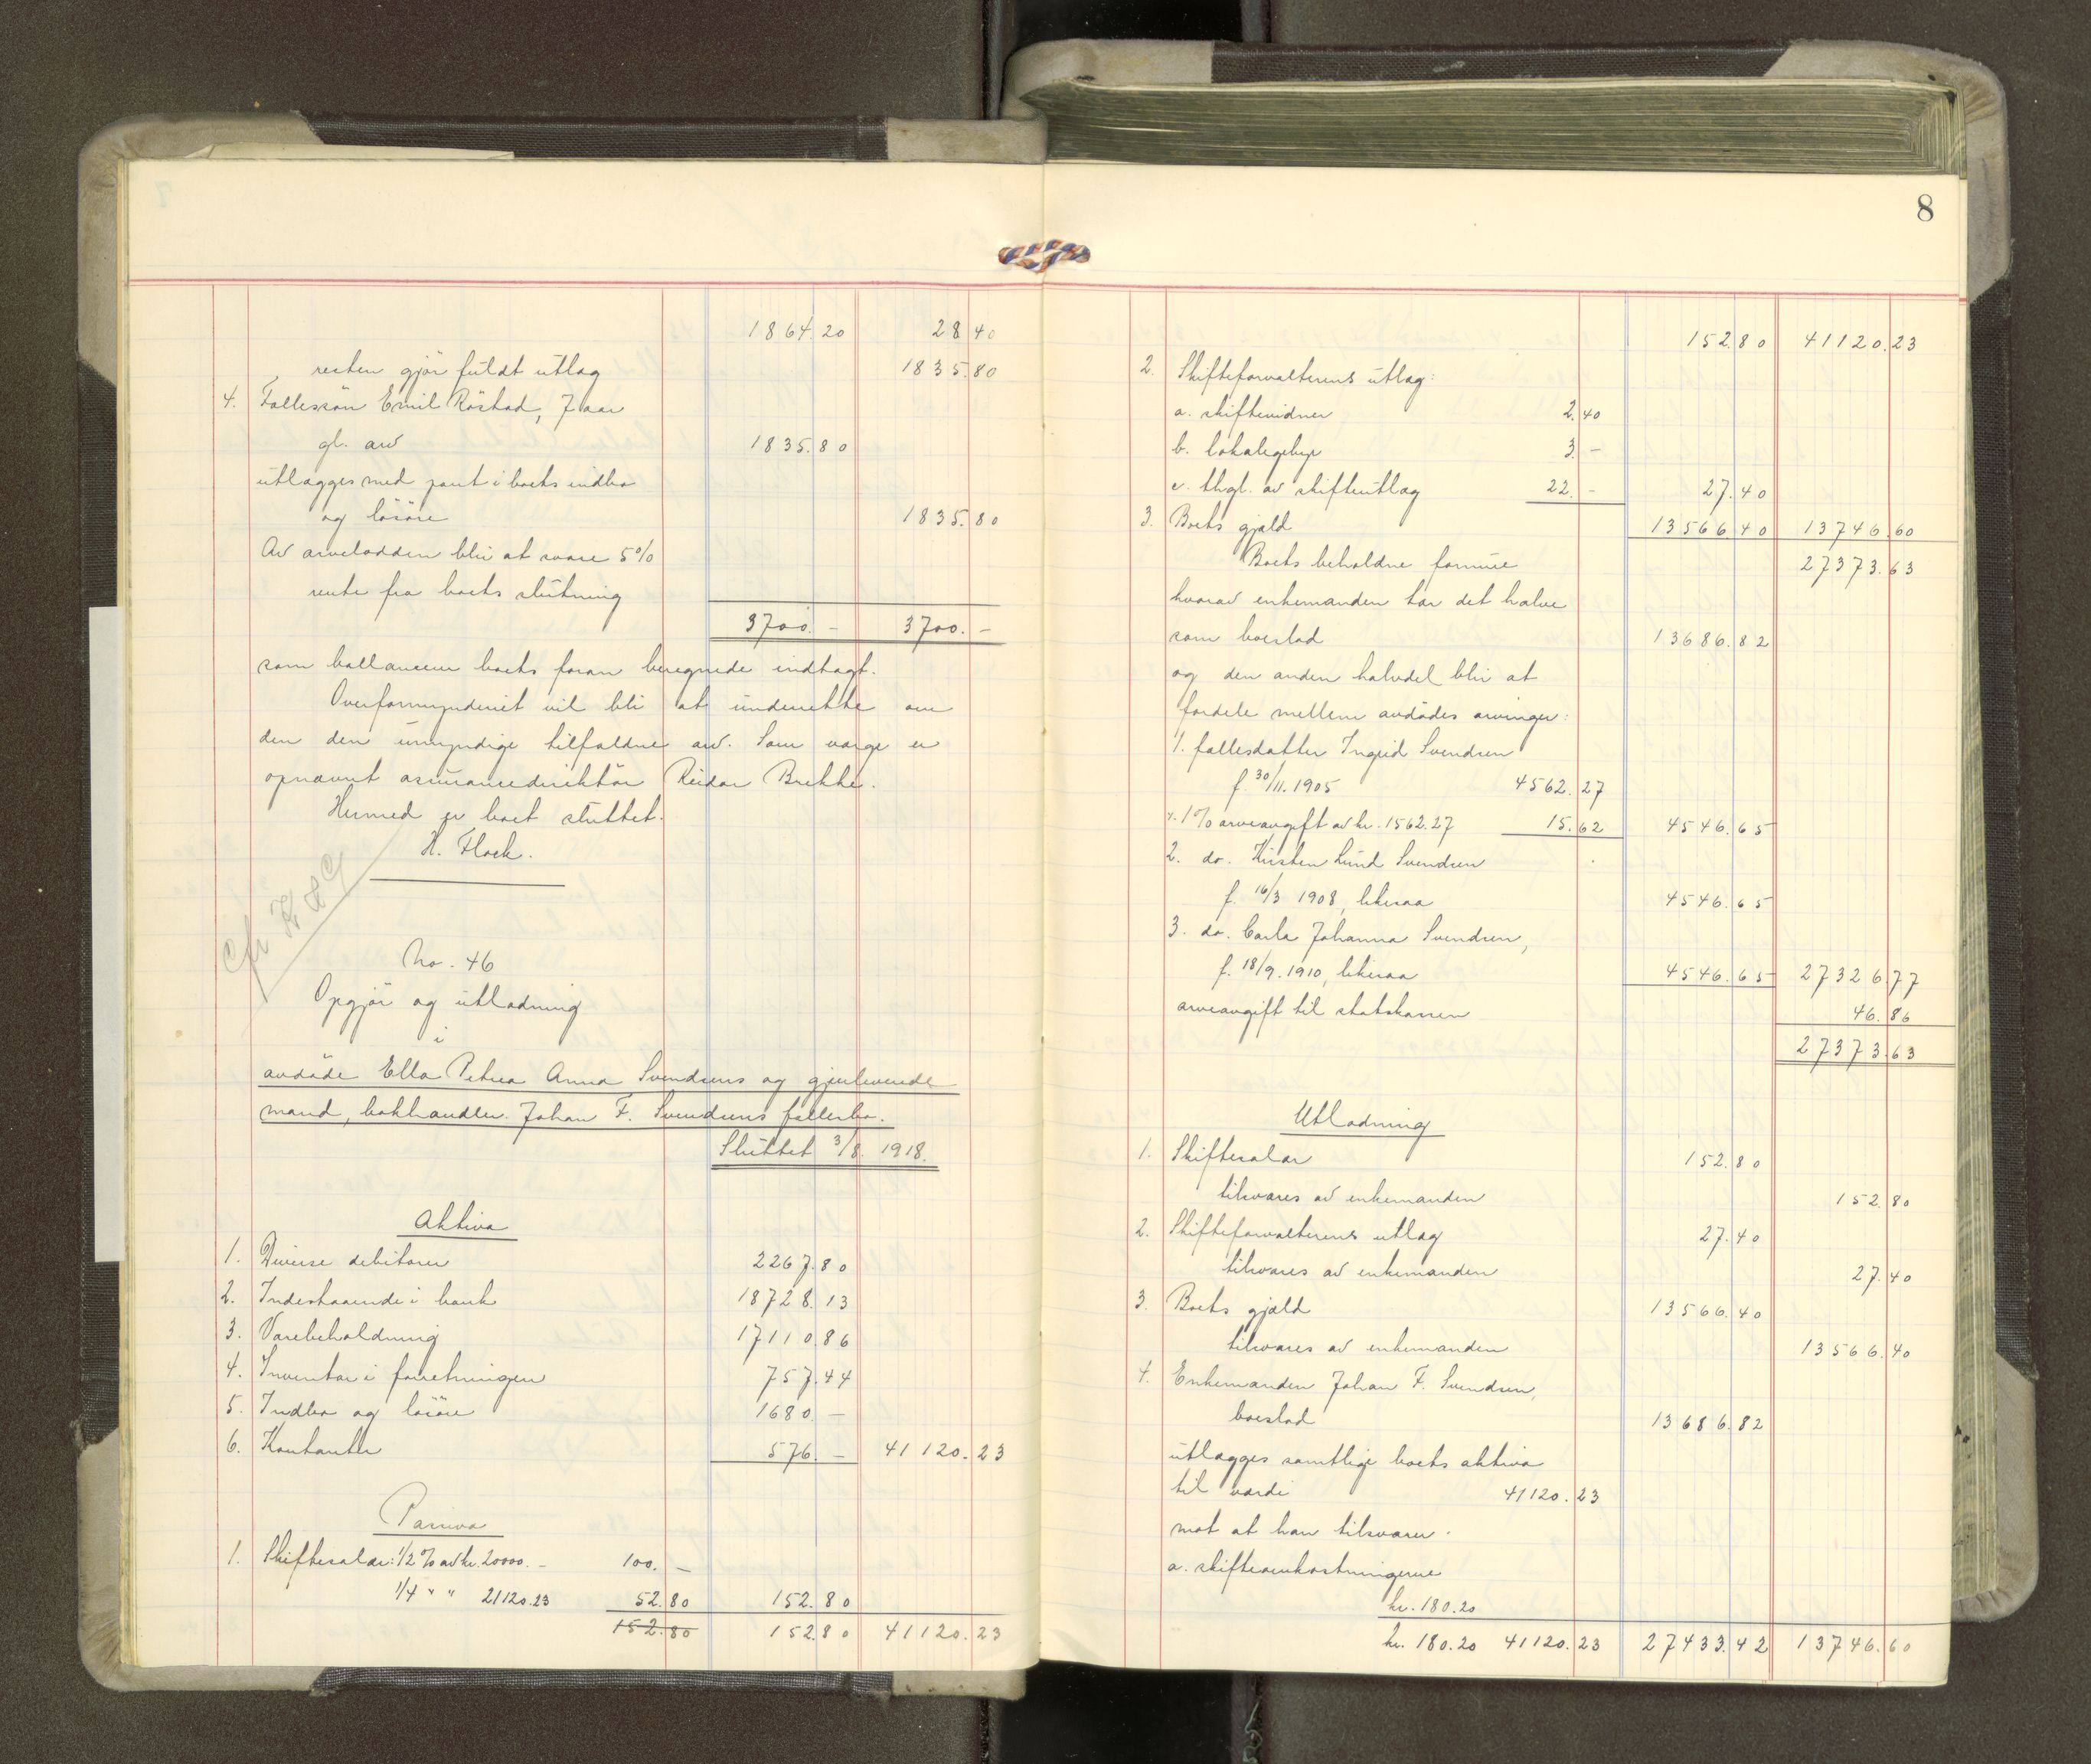 1864.20 28.40
resten gjør fuldt utlæg 1835.80
4. Fællessøn Emil Röstad, 7 aar
gl. arv 1835.80
utlægges med pant i boets indbo
og løsøre 1835.80
Av arvelodden blir at svare 5%
rente fra boets slutning
3700.- 3700.-
som ballancerer boets foran beregnede indtægt.
Overformynderiet vil bli at underrette om
den den umyndige tilfaldne arv. Som værge er
opnævnt assurancedirektør Reidar Brekke.
Hermed er boet sluttet.
H. Floek.
cfr
No. 46
Opgjør og utlodning
i
avdøde Ella Petrea Anna Svendsens og gjenlevende
mand, bokhandler Johan F. Svendsens fællesbo.
Sluttet 3/8 1918.
Aktiva
1. Diverse debitorer 2267.80
2. Indestaaende i bank 18728.13
3. Varebeholdning 17110.86
4. Inventar i forretningen 757.44
5. Indbo og løsøre 1680.-
6. Kontanter 576.- 41120.23
Passiva
1. Skiftesalær: 1/2% av kr. 20000.- 100.-
1/4 " " 21120.23 52.80 152.80
152.80 152.80 41120.23
8
152.80 41120.23
2. Skifteforvalterens utlæg:
a. skiftevidner 2.40
b. lokalegebyr 3.-
c. thgl. av skifteutlæg 22.- 27.40
3. Boets gjæld 13566.40 13746.60
Boets beholdne formue 27373.63
hvorav enkemanden tar det halve
som boeslod 13686.82
og den anden halvdel blir at
fordele mellem avdødes arvinger:
1. fællesdatter Ingrid Svendsen
f. 30/11.1905 4562.27
÷ 1% arveavgift av kr. 1562.27 15.62 4546.65
2. do. Kirsten Lund Svendsen
f. 16/3 1908, likesaa 4546.65
3. do. Carla Johanna Svendsen,
f. 18/9.1910, likesaa 4546.65 27326.77
arveavgift til statskassen 46.86
27373.63
Utlodning
1. Skiftesalær 152.80
tilsvares av enkemanden 152.80
2. Skifteforvalterens utlæg 27.40
tilsvares av enkemanden 27.40
3. Boets gjæld 13566.40
tilsvares av enkemanden 13566.40
4. Enkemanden Johan F. Svendsen,
boeslod 13686.82
utlægges samtlige boets aktiva
til værdi 41120.23
mot at han tilsvarer:
a. skifteomkostningerne
kr. 180.20
kr. 180.20 41120.23 27433.42 13746.60